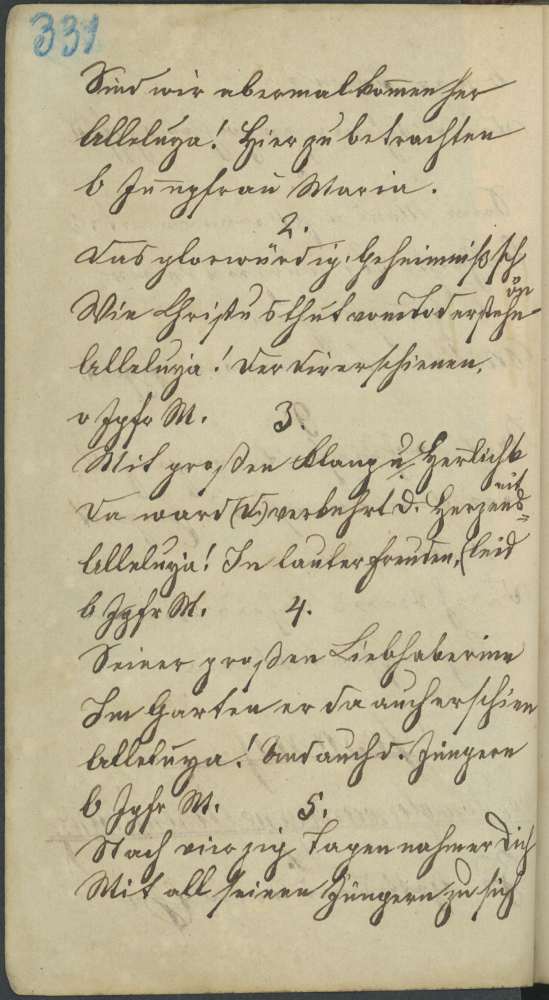 331
Sind wir abermal kom̅en her
Alleluya! Hier zu betrachten
O Jungfrau Maria.
2.
Das glorwürdig. Geheimniß sch
ön
Wie Christus thut vom Tod erstehn
Alleluja! Der dir erschienen,
o Jgfr M. 3.
Mit großen Klang u. Herrlichk
eit
Da ward (d.) verkehrt d. Herzens=
Alleluja! In lauter Freuden, (leid
O Jgfr M. 4.
Seiner großen Liebhaberinn
Im Garten er da auch erschien
Alleluya! Und auch d. Jüngern
O Jgfr M. 5.
Nach vierzig Tagen nahm er dich
Mit all seinen Jüngern zu sich